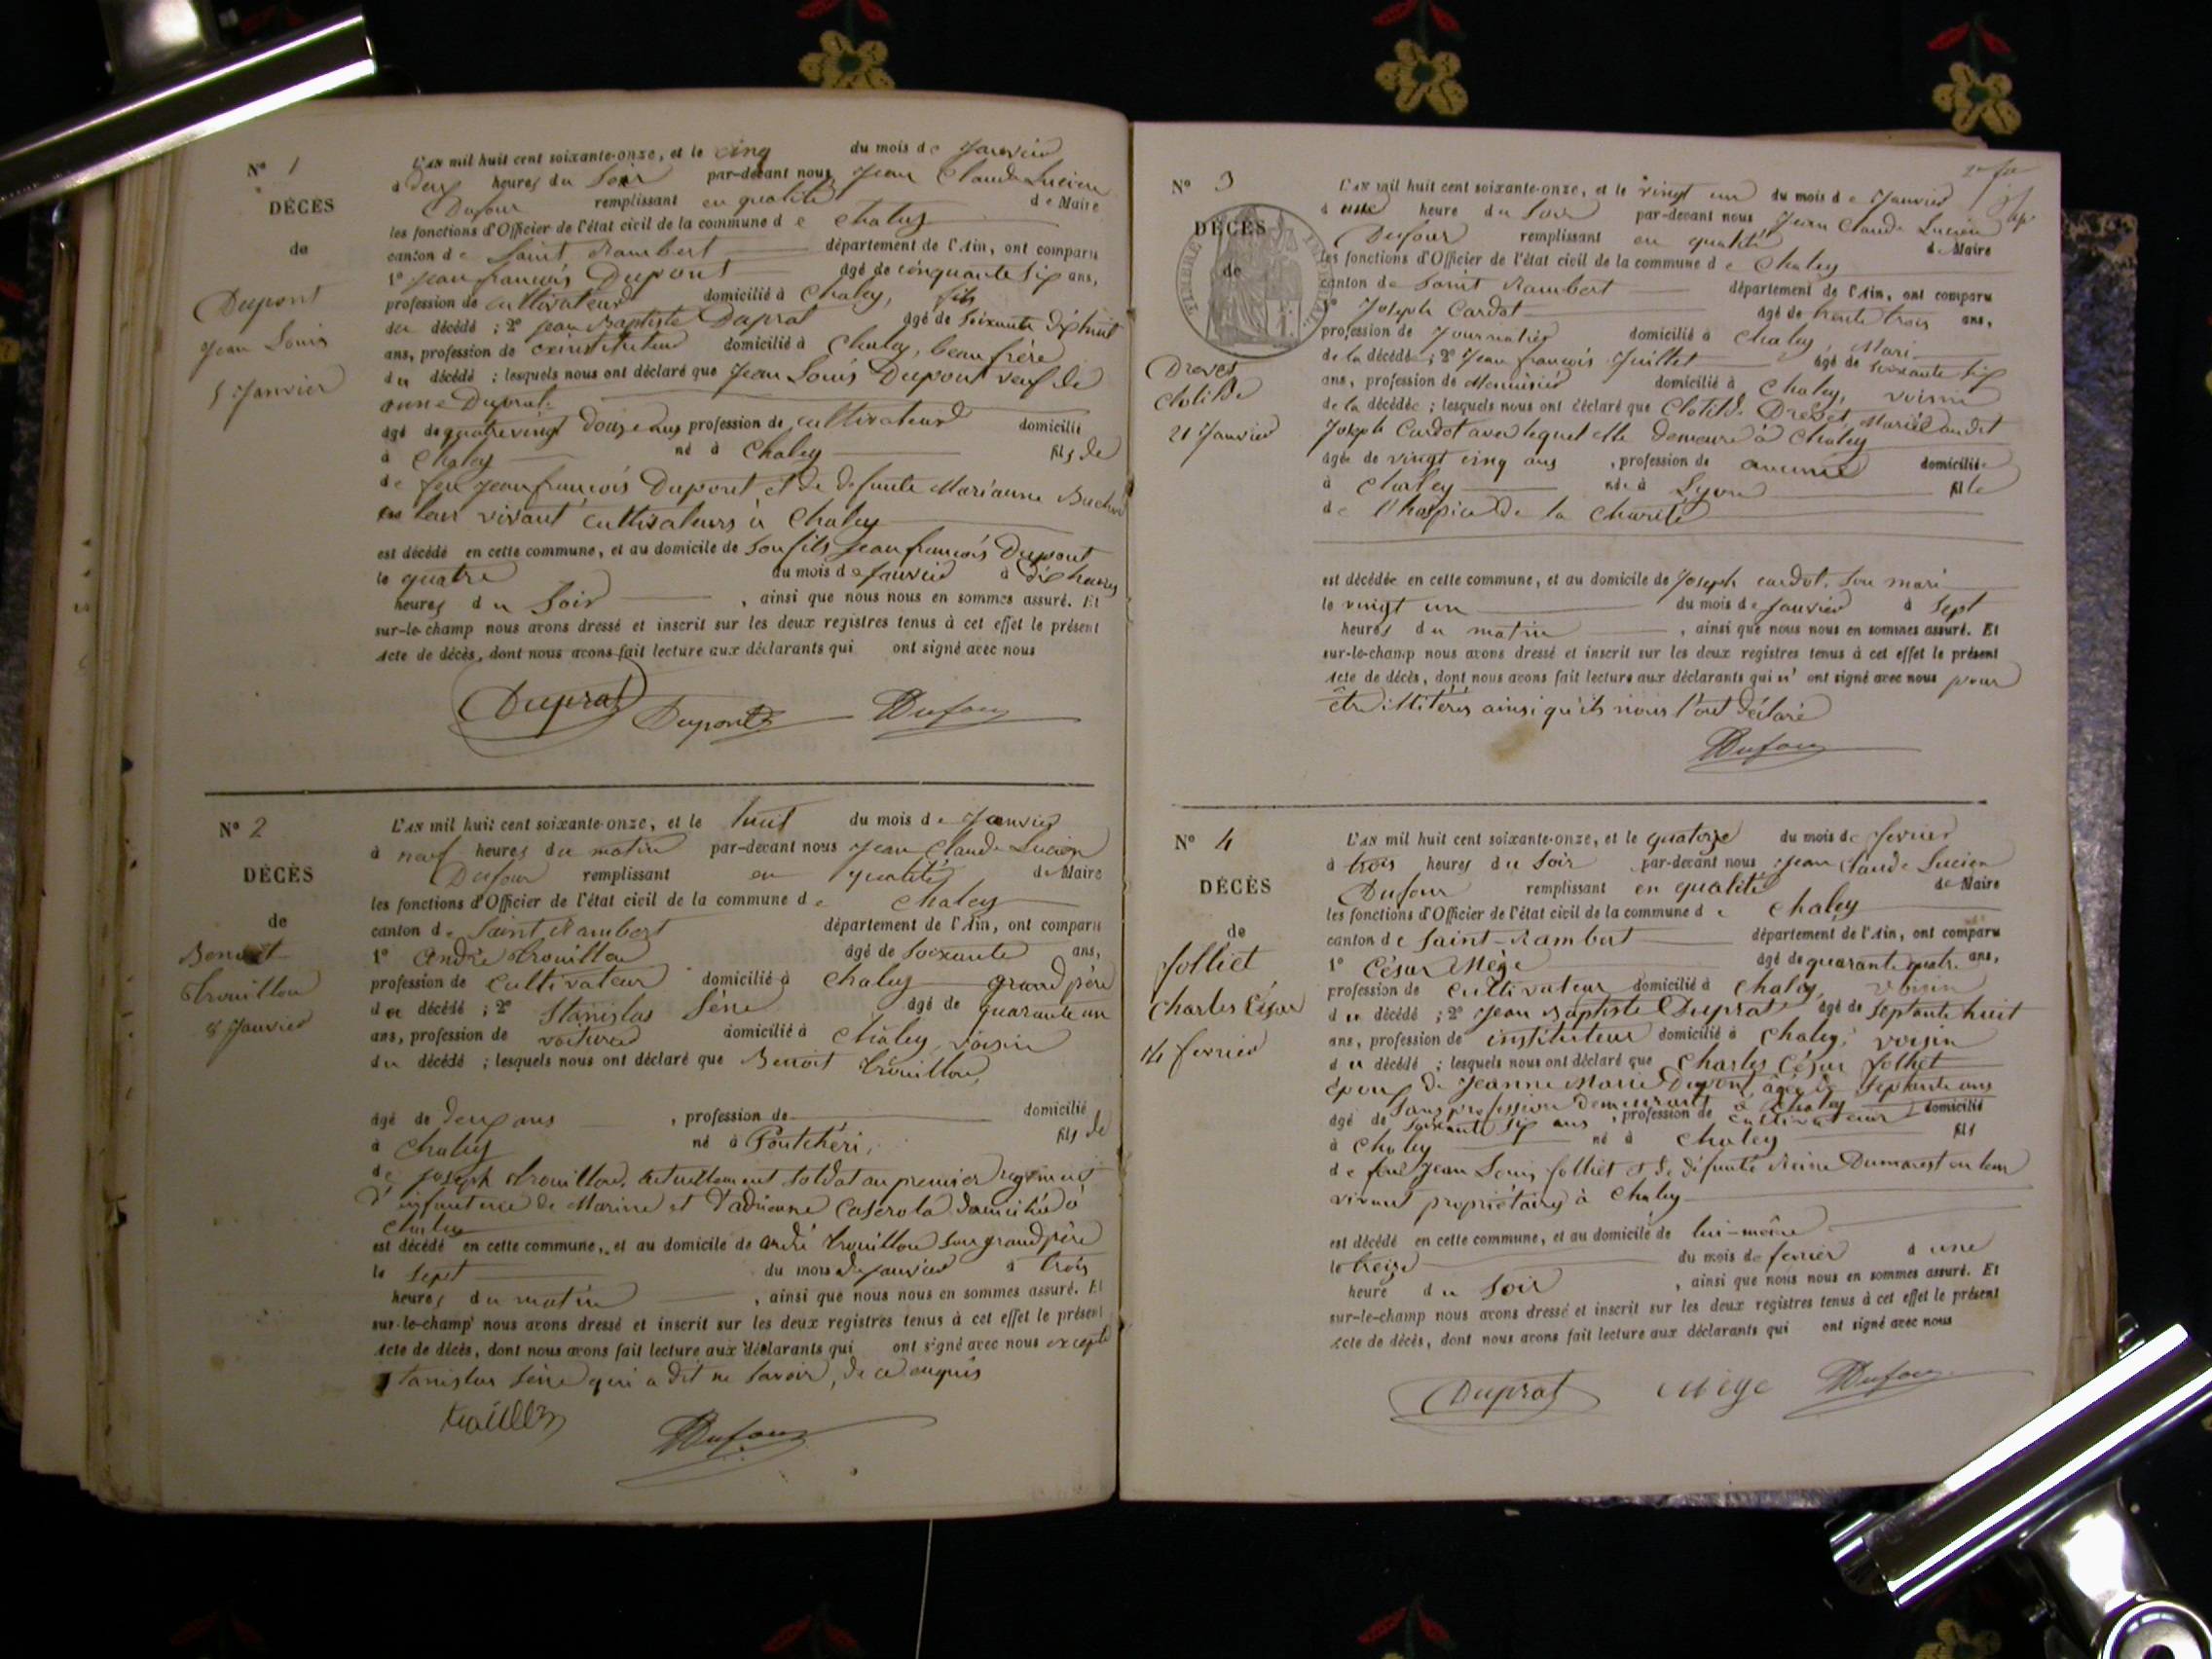 N° 1
DÉCÈS
de
Dupont
Jean Louis
5 Janvier
L'AN mil huit cent soixante-onze, et le cinq du mois de Janvier
à deux heures du Soir par-devant nous Jean Claude Lucien
Dufour remplissant en qualité de Maire
les fonctions d'Officier de l'état civil de la commune de Chaley
canton de Saint Rambert département de l'Ain, ont comparu
1° Jean françois Dupont âgé de cinquante six ans,
profession de cultivateur domicilié à Chaley, fils
du décédé ; 2° Jean Baptiste Duprat âgé de soixante dix huit
ans, profession de exinstituteur domicilié à Chaley, beau frère
du décédé ; lesquels nous ont déclaré que Jean Louis Dupont veuf de
anne Duprat
âgé de quatre vingt douze ans profession de cultivateur domicilié
à Chaley né à Chaley fils de
de feu Jean françois Dupont et de defunte Marianne
en leur vivant cultivateurs à Chaley
est décédé en cette commune, et au domicile de Son fils Jean françois Dupont
le quatre du mois de Janvier à dix heures
heures du Soir , ainsi que nous nous en sommes assuré. Et
sur-le-champ nous avons dressé et inscrit sur les deux registres tenus à cet effet le présent
Acte de décès, dont nous avons fait lecture aux déclarants qui ont signé avec nous
Duprat Dupont Dufour
N° 2
DÉCÈS
de
Benoit
Trouillou
8 Janvier
L'AN mil huit cent soixante-onze, et le huit du mois de Janvier
à neuf heures du matin par-devant nous Jean Claude Lucien
Dufour remplissant en qualité de Maire
les fonctions d'Officier de l'état civil de la commune de Chaley
canton de Saint Rambert département de l'Ain, ont comparu
1° André Trouillou âgé de soixante ans,
profession de Cultivateur domicilié à Chaley grand père
du décédé ; 2° Stanislas Séne âgé de quarante un
ans, profession de voiturier domicilié à Chaley, voisin
du décédé ; lesquels nous ont déclaré que Benoit Trouillou,
âgé de deux ans , profession de domicilié
à Chaley né à Pontchéri, fils de
de Joseph Trouillou, actuellement soldat au premier régiment
d'infanterie de Marine et d'adrienne Caserola domiciliée à
Chaley
est décédé en cette commune, et au domicile de andré Trouillou son grand père
le Sept du mois de Janvier à trois
heures du matin , ainsi que nous nous en sommes assuré. Et
sur-le-champ nous avons dressé et inscrit sur les deux registres tenus à cet effet le présent
Acte de décès, dont nous avons fait lecture aux déclarants qui ont signé avec nous excepté
Stanislas Séne qui a dit ne savoir, de ce enquis
Dufour
N° 3
DÉCÈS
de
TIMBRE IMPÉRIAL
Drevet
Clotilde
21 Janvier
L'AN mil huit cent soixante-onze, et le vingt un du mois de Janvier
à une heure du Soir par-devant nous Jean Claude Lucien
Dufour remplissant en qualité de Maire
les fonctions d'Officier de l'état civil de la commune de Chaley
canton de Saint Rambert département de l'Ain, ont comparu
1° Joseph Cardot âgé de trente trois ans,
profession de Journalier domicilié à Chaley, Mari
de la décédée ; 2° Jean françois Juillet âgé de soixante six
ans, profession de Menuisier domicilié à Chaley, voisin
de la décédée ; lesquels nous ont déclaré que Clotilde Drevet, Mariée au dit
Joseph Cardot avec lequel elle demeure à Chaley
âgée de vingt cinq ans , profession de aucune domiciliée
à Chaley née à Lyon fille
de l'hospice de la Charité
est décédée en cette commune, et au domicile de Joseph cardot, son mari
le vingt un du mois de Janvier à Sept
heures du matin , ainsi que nous nous en sommes assuré. Et
sur-le-champ nous avons dressé et inscrit sur les deux registres tenus à cet effet le présent
Acte de décès, dont nous avons fait lecture aux déclarants qui n'ont signé avec nous pour
être illitérés ainsi qu'ils nous l'ont déclaré
Dufour
N° 4
DÉCÈS
de
folliet
Charles César
14 fevrier
L'AN mil huit cent soixante-onze, et le quatorze du mois de fevrier
à trois heures du Soir par-devant nous Jean Claude Lucien
Dufour remplissant en qualité de Maire
les fonctions d'Officier de l'état civil de la commune de Chaley
canton de Saint-Rambert département de l'Ain, ont comparu
1° César Mège âgé de quarante quatre ans,
profession de cultivateur domicilié à Chaley, voisin
du décédé ; 2° Jean Baptiste Duprat âgé de Septante huit
ans, profession de instituteur domicilié à Chaley, voisin
du décédé ; lesquels nous ont déclaré que Charles César folliet
époux de Jeanne Marie Dupont âgée de Septante ans
sans profession demeurant à Chaley
âgé de soixante six ans , profession de cultivateur domicilié
à Chaley né à Chaley fils
de feu Jean Louis folliet et de défunte Reine Dumarest en leur
vivant propriétaires à Chaley
est décédé en cette commune, et au domicile de lui-même
le treize du mois de fevrier à une
heure du Soir , ainsi que nous nous en sommes assuré. Et
sur-le-champ nous avons dressé et inscrit sur les deux registres tenus à cet effet le présent
Acte de décès, dont nous avons fait lecture aux déclarants qui ont signé avec nous
Duprat Mège Dufour